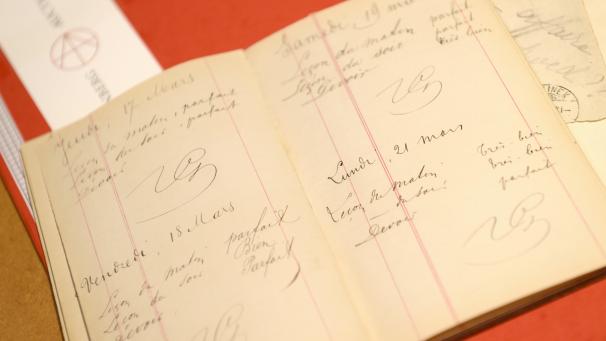 Jeudi, 17 Mars
Leçon du matin, parfait
Leçon du soir, parfait
Devoir
Vendredi, 18 Mars
Leçon du matin parfait
Leçon du soir Bien
Devoir Parfait
Samedi, 19 Mars
Leçon du matin parfait
Leçon du soir parfait
Devoir très bien
Lundi, 21 Mars
Leçon du matin Très-bien
— du soir Très-bien
Devoir parfait